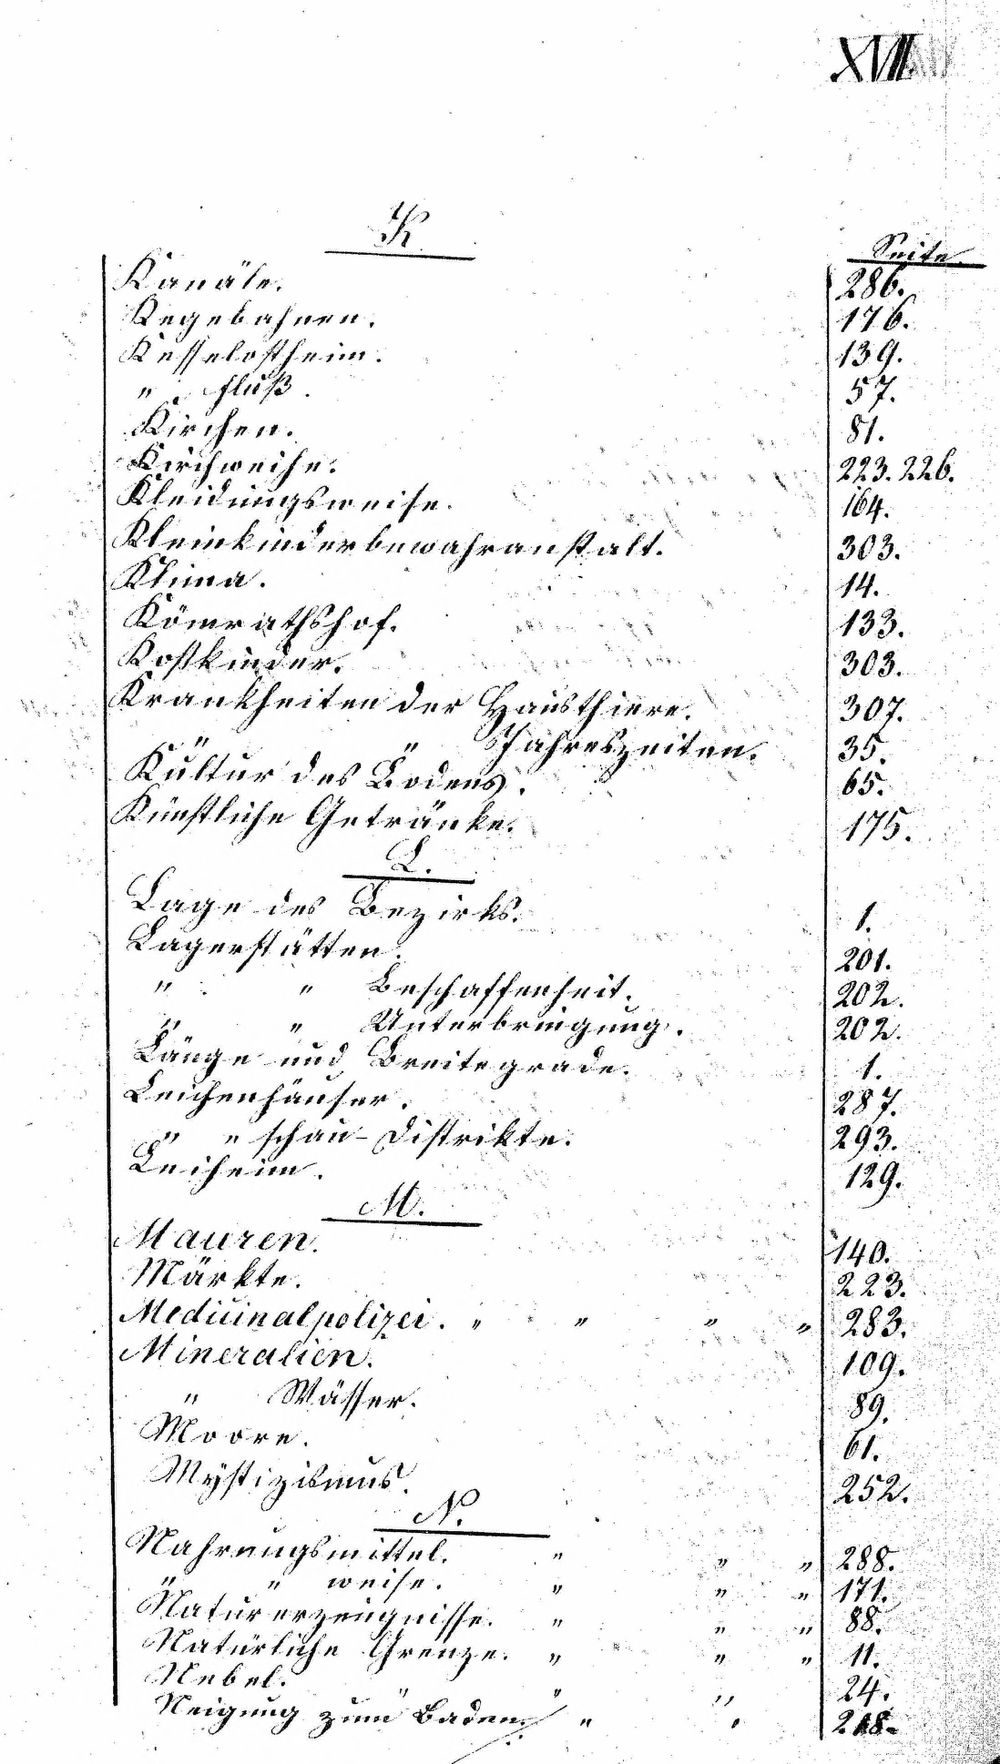 XVII.
K
Seite
Kanäle. 286.
Kegebahnen. 176.
Kesselostheim. 139.
" fluß. 57.
Kirchen. 81.
Kirchweihe. 223. 226.
Kleidungsweise. 164.
Kleinkinderbewahranstalt. 303.
Klima. 14.
Kömrathshof. 133.
Kostkinder. 303.
Krankheiten der Hausthiere. 307.
" " Jahreszeiten. 35.
Kultur des Bodens. 65.
Künstliche Getränke. 175.
L.
Lage des Bezirks. 1.
Lagerstätten. 201.
" " Beschaffenheit. 202.
" " Unterbringung. 202.
Länge und Breitegrade. 1.
Leichenhäuser. 287.
" " schau-Distrikte. 293.
Leiheim. 129.
M.
Mauren. 140.
Märkte. 223.
Medicinalpolizei. " " " " 283.
Mineralien. 109.
" Wässer. 89.
Moore. 61.
Mystizismus. 252.
N.
Nahrungsmittel. " " " 288.
" " weise. " " " 171.
Naturerzeugnisse. " " " 88.
Natürliche Grenze. " " " 11.
Nebel. " " 24.
Neigung zum Baden. " "